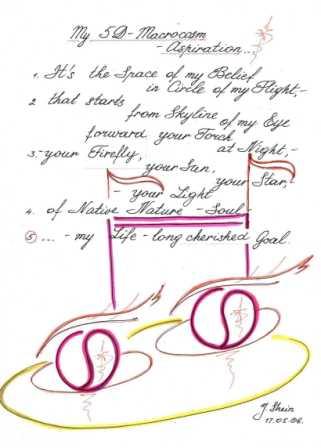 My 5D-Macrocosm
- Aspiration...
1. It's the Space of my Belief
in Circle of my Flight,-
2 that starts
from Skyline of my Eye
forward your Torch at Night,-
3.-your Firefly,
your Sun, your Star,-
- your Light
4. of Native Nature - Soul-
5 ... - my Life-long cherished Goal.
J. Shein
17.05.06.